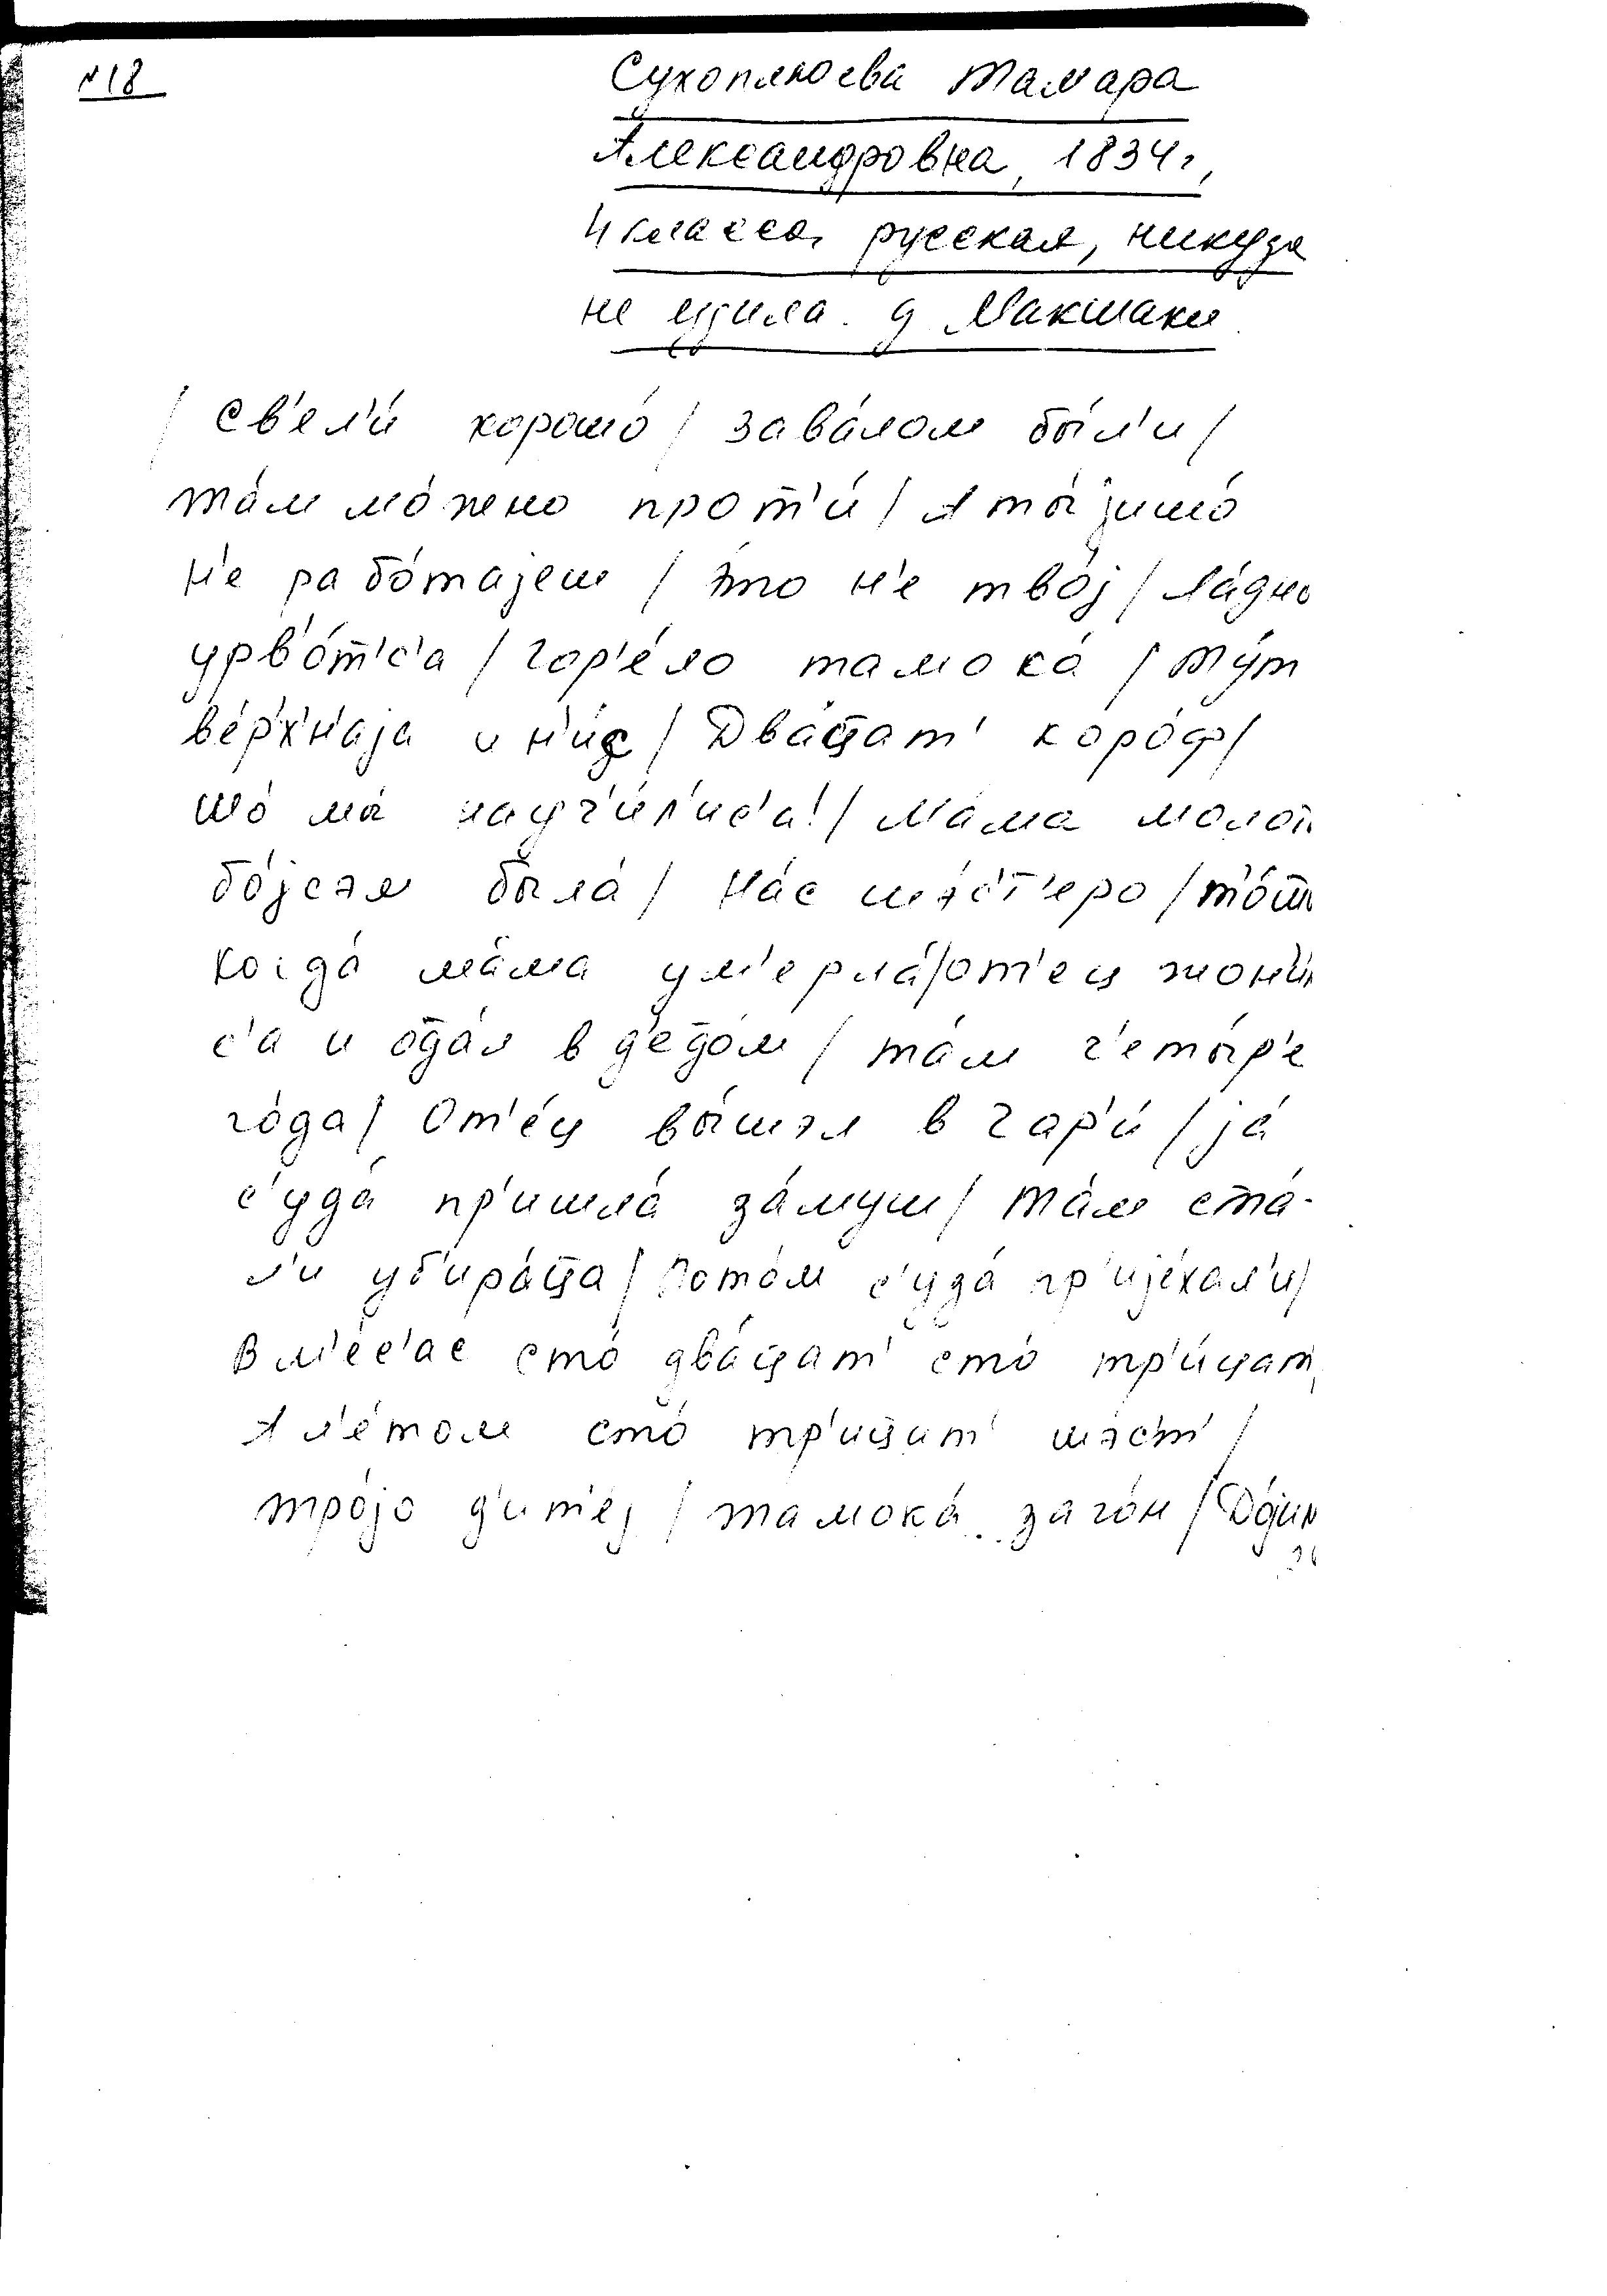 №18
Сухоплюева Тамара
Александровна, 1834г,
4 класса, русская, никуда
не ездила. д Макшаки
/ Св'ел'и́ хорошо́ / зава́лом бы́л'и /
та́м мо́жно прот'и́ / А ты́ jишо́
н'е рабо́таjеш / э́то н'е тво́j / Ла́дно
урв'о́т'с'а / Гор'е́ло тамока́ / Ту́т
ве́р'х'н'аjа и н'и́с / Два́цат' коро́ф /
Шо́ мы́ науч'и́л'ис'а! / Ма́ма
бо́jсэл была́ / На́с шэ́ст'еро /
Когда́ ма́ма ум'ерла́ / от'ец жон'и́л
с'а и одал в д'едо́м / та́м ч'еты́р'е
го́да / От'е́ц вы́шэл в Гар'и́ / jа́
с'уда́ пр'ишла́ за́муш / Та́м ста́-
л'и уб'ира́ца / Пото́м с'уда́ пр'иjе́хал'и /
В м'е́с'ас сто́ два́цат' сто́ тр'и́цат'
А л'е́том сто́ тр'и́цат' шэ́ст' /
тро́jо д'ит'е́j / тамока́ заго́н /